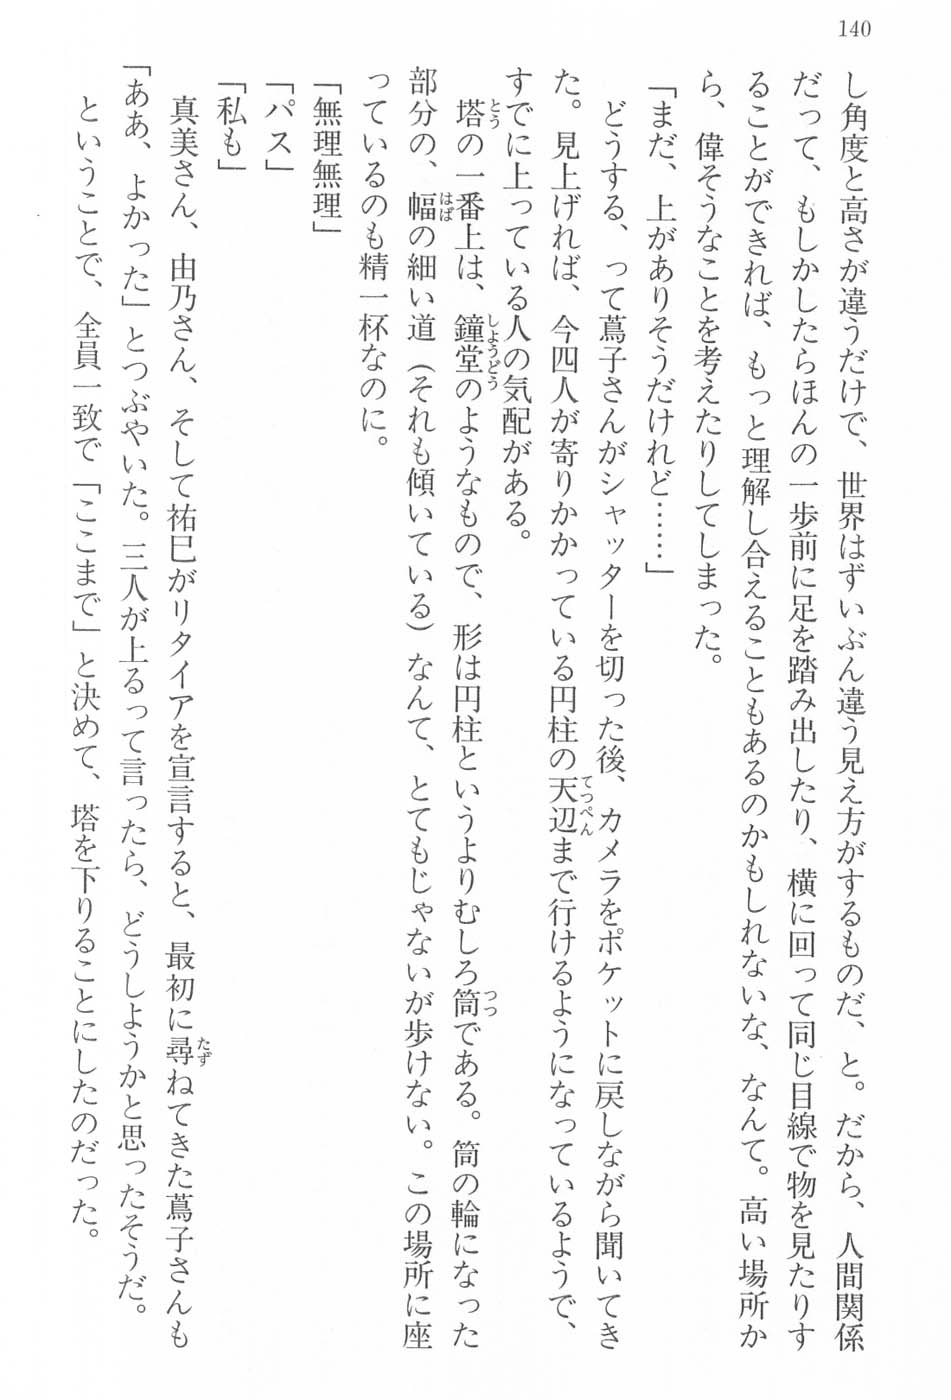 140
し角度と高さが違うだけで、世界はずいぶん違う見え方がするものだ、と。だから、人間関係
だって、もしかしたらほんの一歩前に足を踏み出したり、横に回って同じ目線で物を見たりす
ることができれば、もっと理解し合えることもあるのかもしれないな、なんて。高い場所か
ら、偉そうなことを考えたりしてしまった。
「まだ、上がありそうだけれど……」
どうする、って蔦子さんがシャッターを切った後、カメラをポケットに戻しながら聞いてき
た。見上げれば、今四人が寄りかかっている円柱の天辺まで行けるようになっているようで、
すでに上っている人の気配がある。
塔の一番上は、鐘堂のようなもので、形は円柱というよりむしろ筒である。筒の輪になった
部分の、幅の細い道（それも傾いている）なんて、とてもじゃないが歩けない。この場所に座
っているのも精一杯なのに。
「無理無理」
「パス」
「私も」
真美さん、由乃さん、そして祐巳がリタイアを宣言すると、最初に尋ねてきた蔦子さんも
「ああ、よかった」とつぶやいた。三人が上るって言ったら、どうしようかと思ったそうだ。
ということで、全員一致で「ここまで」と決めて、塔を下りることにしたのだった。